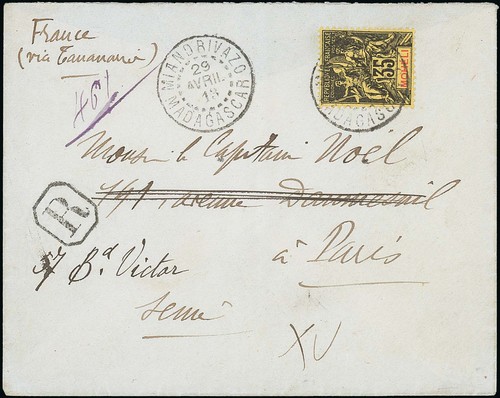 France
(via Tananarive)
461
MIANDRIVAZO
29
AVRIL
13
MADAGASCAR
RÉPUBLIQUE FRANÇAISE
35
MOHÉLI
MADAGASCAR
Monsieur le Capitaine Noël
141 avenue Daumesnil
à Paris
R
57 Bd Victor
Seine
XV